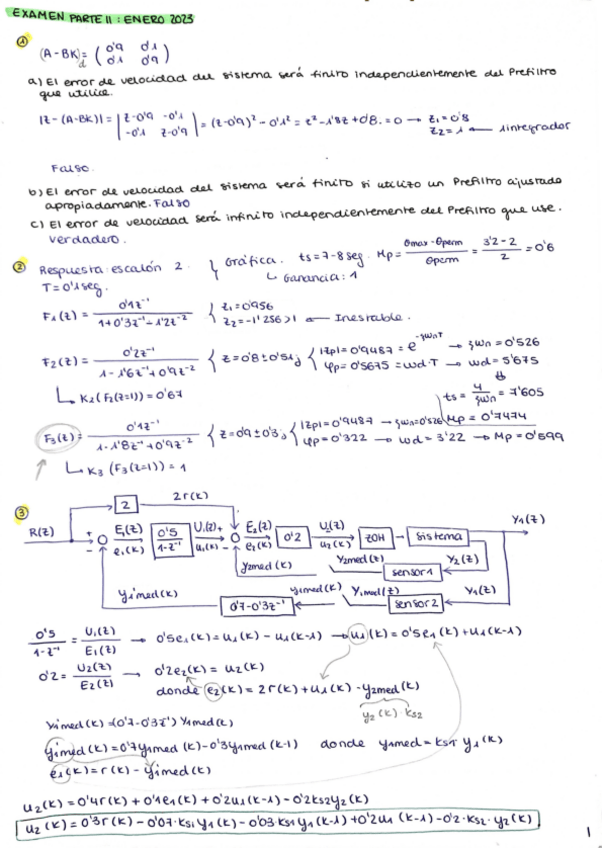 EXAMEN PARTE II : ENERO 2023
①
(A-BK)= ( 0'9 0'1
0'1 0'9 )
a) El error de velocidad del sistema será finito independientemente del Prefiltro
que utilice.
|z-(A-BK)| = | z-0'9 -0'1
-0'1 z-0'9 | = (z-0'9)² - 0'1² = z² - 1'8z + 0'8 = 0 → z₁ = 0'8
z₂ = 1 ← 1 integrador
Falso.
b) El error de velocidad del sistema será finito si utilizo un Prefiltro ajustado
apropiadamente. Falso
c) El error de velocidad será infinito independientemente del Prefiltro que use.
Verdadero.
② Respuesta: escalón 2.
T=0'1 seg.
Gráfica. ts = 7-8 seg. Mp = (θmax - θperm)/θperm = (3'2-2)/2 = 0'6
↳ Ganancia: 1
F₁(z) = 0'1z⁻¹ / (1+0'3z⁻¹-1'2z⁻²) { z₁ = 0'956
z₂ = -1'256 > 1 ← Inestable.
F₂(z) = 0'2z⁻¹ / (1-1'6z⁻¹+0'9z⁻²) { z = 0'8 ± 0'51j { |zp| = 0'9487 = e^(-ξωnT) → ξωn = 0'526
φp = 0'5675 = ωd·T → ωd = 5'675
↳ K₂ (F₂(z=1)) = 0'67
ts = 4/ξωn = 7'605
Mp = 0'7474
F₃(z) = 0'1z⁻¹ / (1-1'8z⁻¹+0'9z⁻²) { z = 0'9 ± 0'3j { |zp| = 0'9487 → ξωn = 0'526
φp = 0'322 → ωd = 3'22 → Mp = 0'599
↳ K₃ (F₃(z=1)) = 1
③
2 2r(k)
R(z) + - E₁(z) e₁(k) 0'5/(1-z⁻¹) U₁(z) u₁(k) + - E₂(z) e₂(k) 0'2 U₂(z) u₂(k) ZOH sistema Y₁(z)
y2med(k) Y2med(z) sensor1 Y₂(z)
y1med(k) 0'7-0'3z⁻¹ y1med(k) Y1med(z) sensor2 Y₁(z)
0'5/(1-z⁻¹) = U₁(z)/E₁(z) → 0'5e₁(k) = u₁(k) - u₁(k-1) → u₁(k) = 0'5e₁(k) + u₁(k-1)
0'2 = U₂(z)/E₂(z) → 0'2e₂(k) = u₂(k)
donde e₂(k) = 2r(k) + u₁(k) - y2med(k)
y₂(k)·ks2
y1med(k) = (0'7-0'3z⁻¹) y1med(k)
y1med(k) = 0'7y1med(k) - 0'3y1med(k-1) donde y1med = ks1 y₁(k)
e₁(k) = r(k) - y1med(k)
u₂(k) = 0'4r(k) + 0'1e₁(k) + 0'2u₁(k-1) - 0'2ks2y₂(k)
u₂(k) = 0'3r(k) - 0'07·ks1y₁(k) - 0'03·ks1y₁(k-1) + 0'2u₁(k-1) - 0'2·ks2·y₂(k)
1